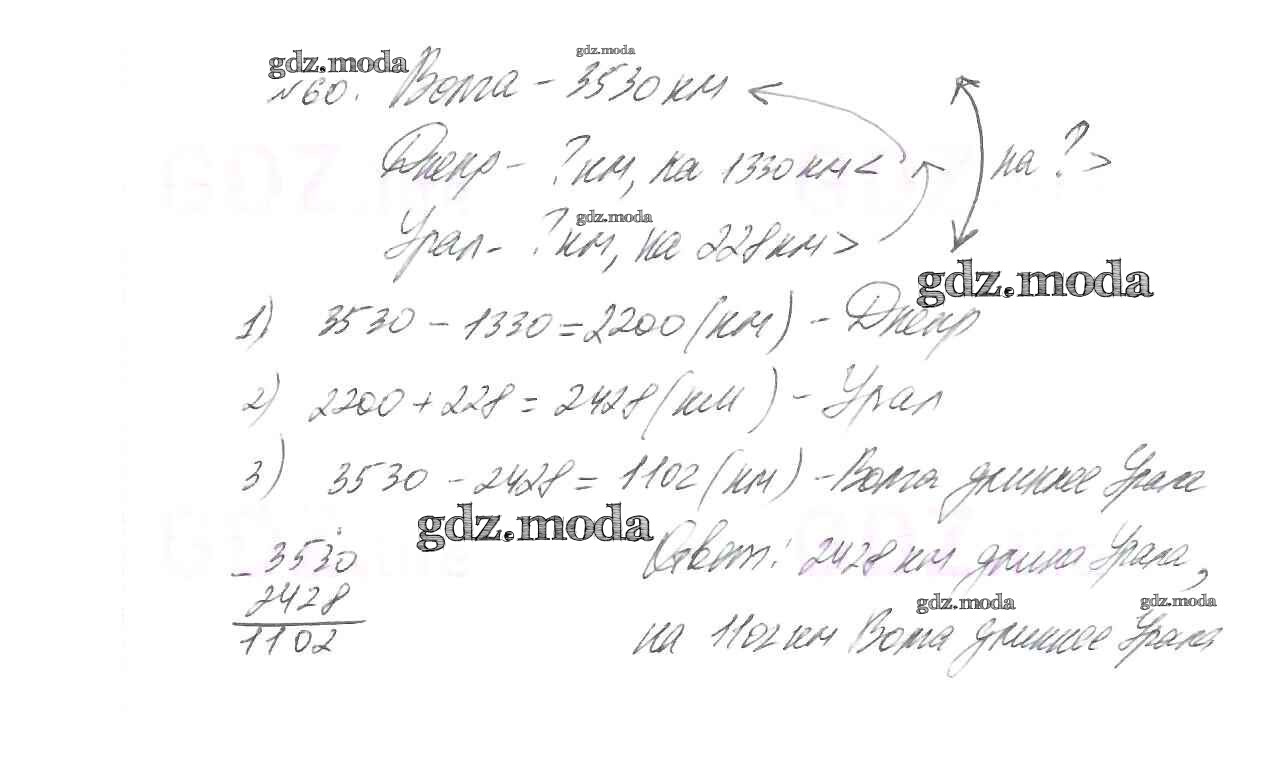 gdz.moda
gdz.moda
№60. Волга - 3530 км <
Днепр - ? км, на 1330 км <
на ? >
gdz.moda
Урал - ? км, на 228 км >
gdz.moda
1) 3530 - 1330 = 2200 (км) - Днепр
2) 2200 + 228 = 2428 (км) - Урал
3) 3530 - 2428 = 1102 (км) - Волга длиннее Урала
gdz.moda
- 3530
2428
1102
Ответ: 2428 км длина Урала,
gdz.moda
gdz.moda
на 1102 км Волга длиннее Урала